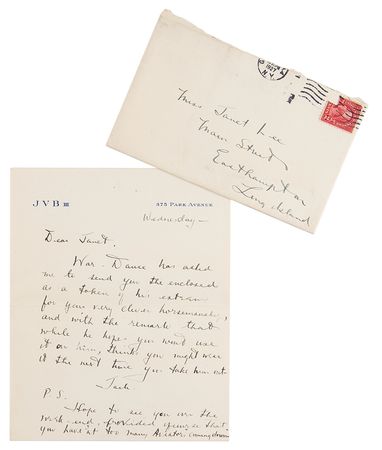 1927
N.Y.
Miss Janet Lee
Main Street
Easthampton
Long Island
JVB III
375 PARK AVENUE
Wednesday—
Dear Janet,
War-Dance has asked
me to send you the enclosed
as a token of his esteem
for your very clever horsemanship,
and with the remark that
while he hopes you won't use
it on him, thinks you might wear
it the next time you take him out.
Jack
P.S.
Hope to see you over the
week-end, provided of course that
you haven't too many Aviators coming down